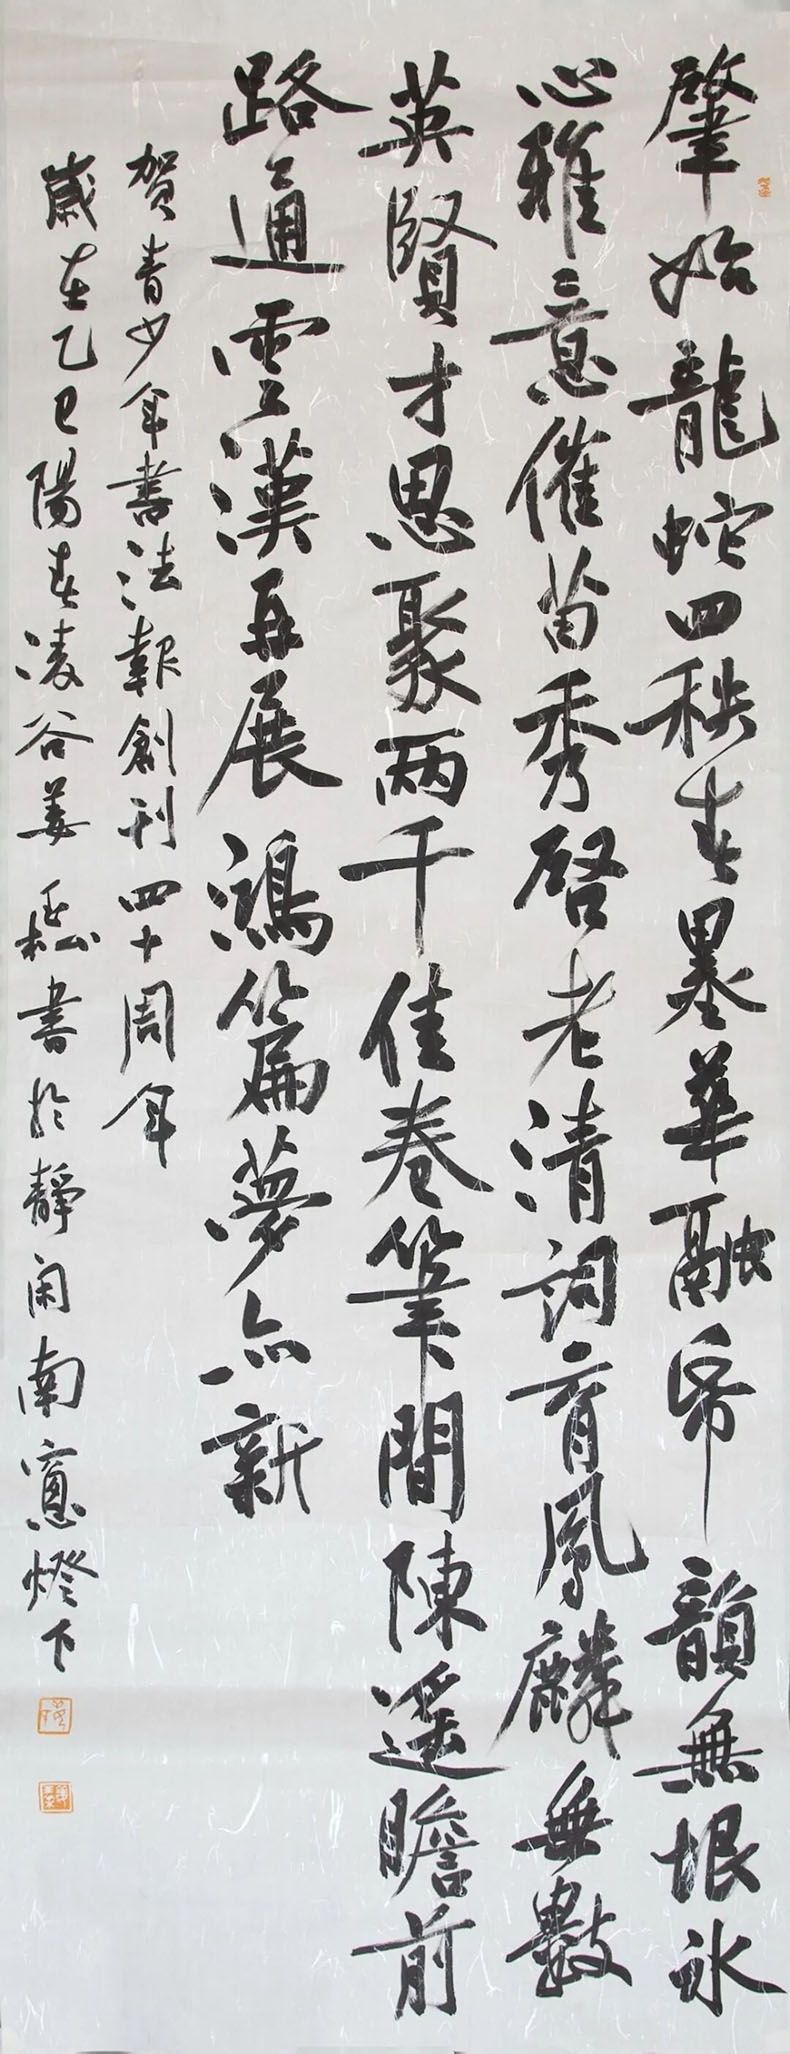 肇始龍蛇四秩春墨華融帋韻無垠冰
心雅意催苗秀啓老清詞育鳳麟無數
英賢才思聚兩千佳卷筆間陳遥瞻前
路通雲漢再展鴻篇夢亦新
賀青少年書法報創刊四十周年
歲在乙巳陽春凌谷姜 書於靜閑南窻燈下